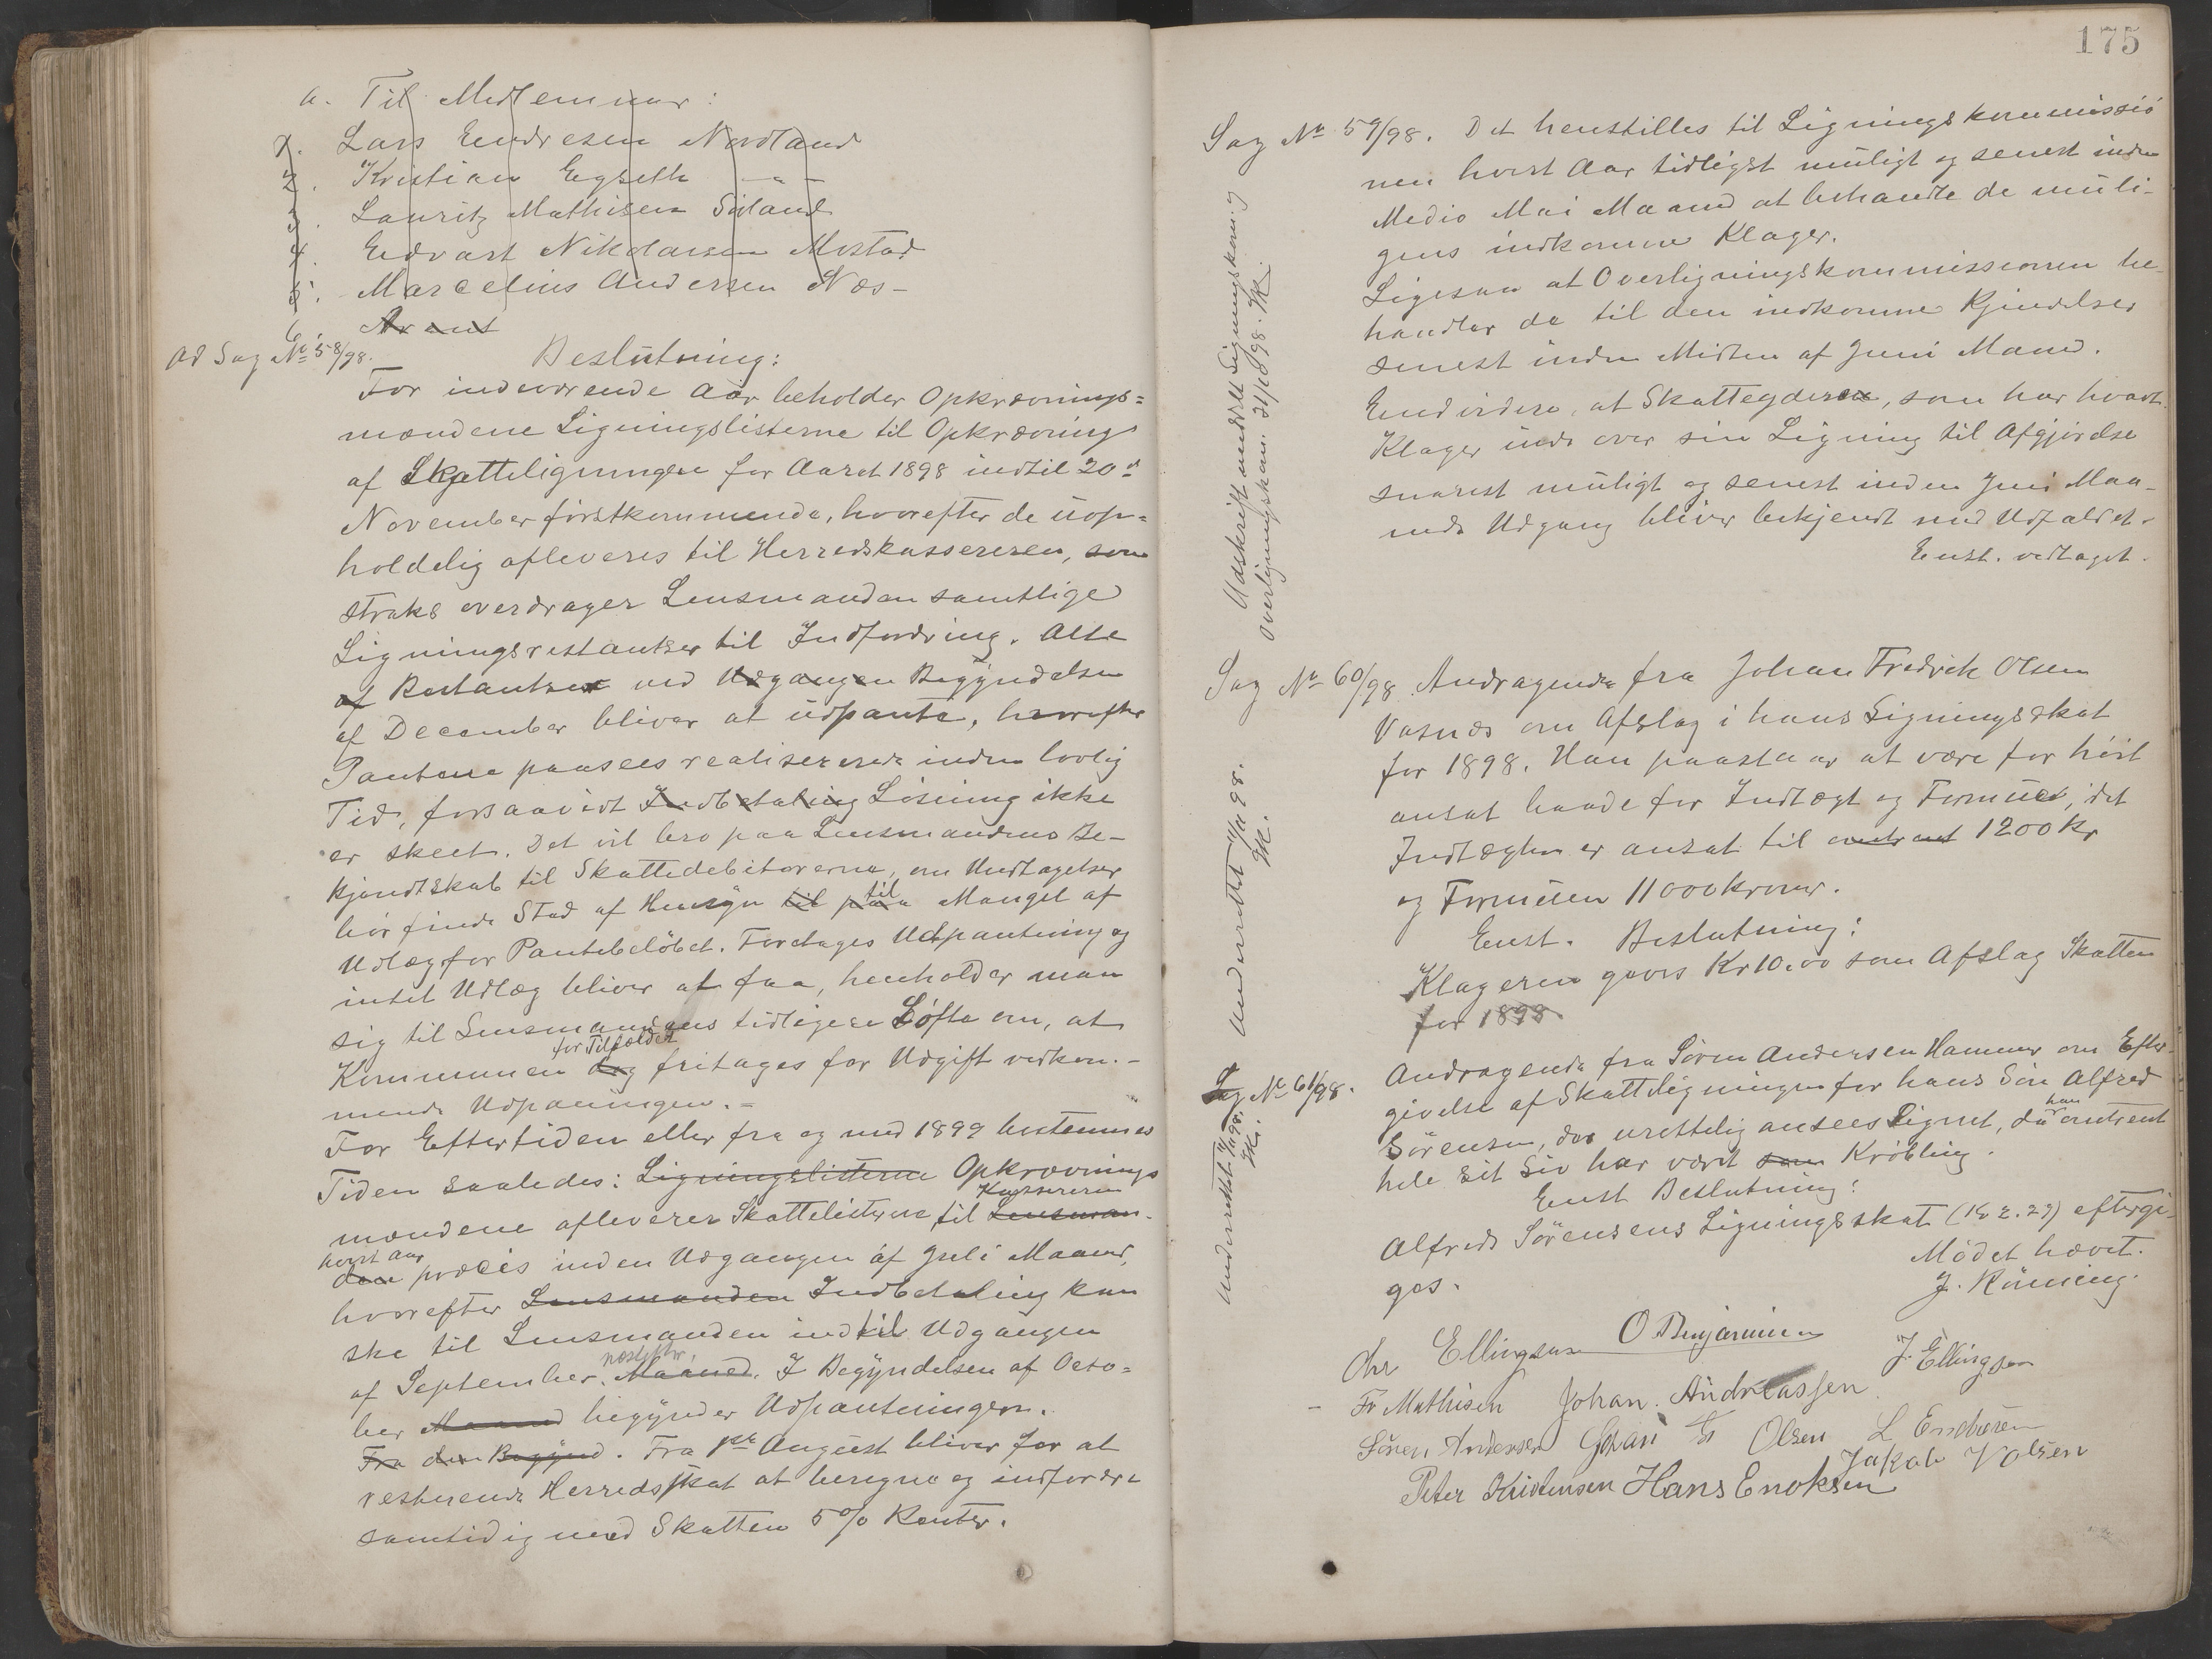 a. Til Medlemmer:
1. Lars Endresen Nordland
2. Kristian Egseth —"—
3. Lauritz Mathisen Sörland
4. Edvart Nikolaisen Mostad
5. Marcelius Andersen Næs-
6. Arent
Ad Sag No 58/98. Beslutning:
For indeværende Aar beholder Opkrævnings=
mændene Ligningslisterne til Opkrævning
af Skatteligningen for Aaret 1898 indtil 20de
November förstkommende, hvorefter de uop=
holdelig afleveres til Herredskassereren, som
straks overdrager Lensmanden samtlige
Ligningsrestantser til Indfordring. Alle
af Restantser ved Udgangen Begyndelsen
af December bliver at udpante, hvorefter
Pantene paasees realiserede inden lovlig
Tid, forsaavidt Indbetaling Lösning ikke
er skeet. Det vil bero paa Lensmandens Be-
kjendtskab til Skattedebitorerne, om Undtagelser
bör finde Sted af Hensyn til paa til Mangel af
Udlæg for Pantebelöbet. Foretages Udpantning og
intet Udlæg bliver at faa, henholder man
sig til Lensmandens tidligere Löfte om, at
Kommunen dog for Tilfældet fritages for Udgift vedkom.-
mende Udpantningen.=
For Eftertiden eller fra og med 1899 bestemmes
Tiden saaledes: Ligningslisterne Opkrævnings
mændene afleverer Skattelisterne til Lensman- Kassereren
den hvert Aar præcis inden Udgangen af Juli Maaned,
hvorefter Lensmanden Indbetaling kan
ske til Lensmanden indtil Udgangen
af September. Maaned. næstefter. I Begyndelsen af Octo=
ber Maaned begynder Udpantningen.
Fra den Begynd. Fra 1ste August bliver for at
resterende Herredsskat at beregne og indfordre
samtidig med Skatten 5% Renter.
175
Sag No 59/98. Det henstilles til Ligningskommissio
nen hvert Aar tidligst muligt og senest inden
Medio Mai Maaned at behandle de muli-
gens indkomne Klager.
Ligesaa at Overligningskommissionen be-
handler de til den indkomne Kjendelser
senest inden Midten af Juni Maaned.
Endvidere, at Skatteyderen, som har hvert
Klager inde over sin Ligning til Afgjörelse
snarest muligt og senest inden Juni Maa-
neds Udgang bliver bekjendt med Udfaldet.
Enst. vedtaget.
Udskrift meddelt Ligningskom. og
Overligningskom. 21/10 98. JR.
Sag No 60/98. Andragende fra Johan Fredrik Olsen
Vasnæs om Afslag i hans Ligningsskat
for 1898. Han paastaar at være for höit
ansat baade for Indtægt og Formue, idet
Indtægten er ansat til omtrent 1200 Kr
og Formuen 11000 kroner.
Enst. Beslutning:
Klageren gives Kr 10.00 som Afslag Skatten
for 1898.
Underrettet 11/11 98.
JR.
Sag No 61/98. Andragende fra Sören Andersen Hammer om Efter-
givelse af Skatteligningen for hans Sön Alfred
Sörensen, der urettelig ansees Lignet, da han omtrent
hele sit Liv har været som Kröbling.
Enst Beslutning:
Alfreds Sörensens Ligningsskat (Kr 2.29) eftergi-
ges.
Mödet hævet.
J. Rönning.
Underrettet 11/11 98.
JR.
Chr Ellingsen O Benjaminsen J. Ellingsen
Fr Mathisen Johan. Andreassen
Sören Andersen Johan Fr Olsen L Endresen
Peter Kristensen Hans Enoksen Jakob V Olsen